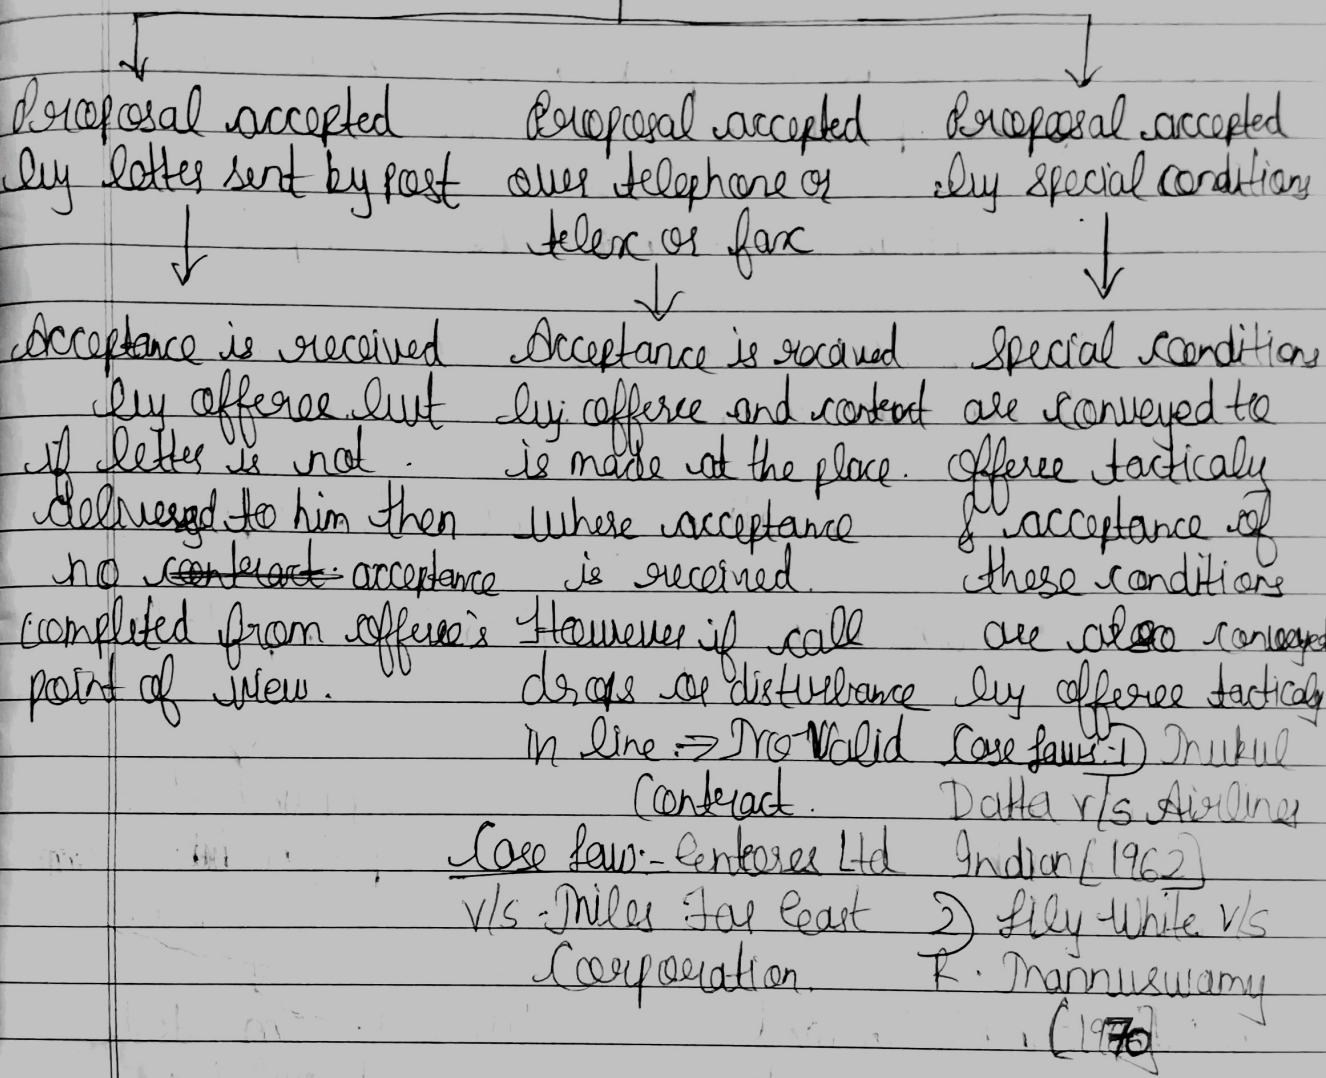 Proposal accepted
by letter sent by post
Acceptance is received
by offeree but
if letter is not
delivered to him then
no contract acceptance
completed from offeree's
point of view.
Proposal accepted
over telephone or
telex or fax
Acceptance is received
by offeree and contract
is made at the place.
where acceptance
is received.
However if call
drops or disturbance
in line ⇒ No Valid
Contract.
Case law:- Entores Ltd
v/s Miles Far East
Corporation.
Proposal accepted
by special conditions
Special conditions
are conveyed to
offeree tacticaly
& acceptance of
these conditions
are also conveyed
by offeree tacticaly
Case laws:- 1)
Datta v/s Airlines
Indian [1962]
2) Lily White v/s
R. Mannuswamy
[1970]